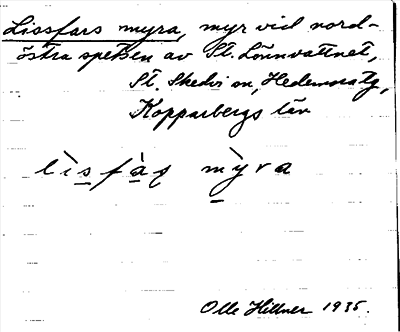 Lissfars myra, myr vid nord-
östra spetsen av St. Lönnvattnet,
St. Skedvi sn, Hedemora tg,
Kopparbergs län
lìsfàʂ mỳra
Olle Hillner 1935.